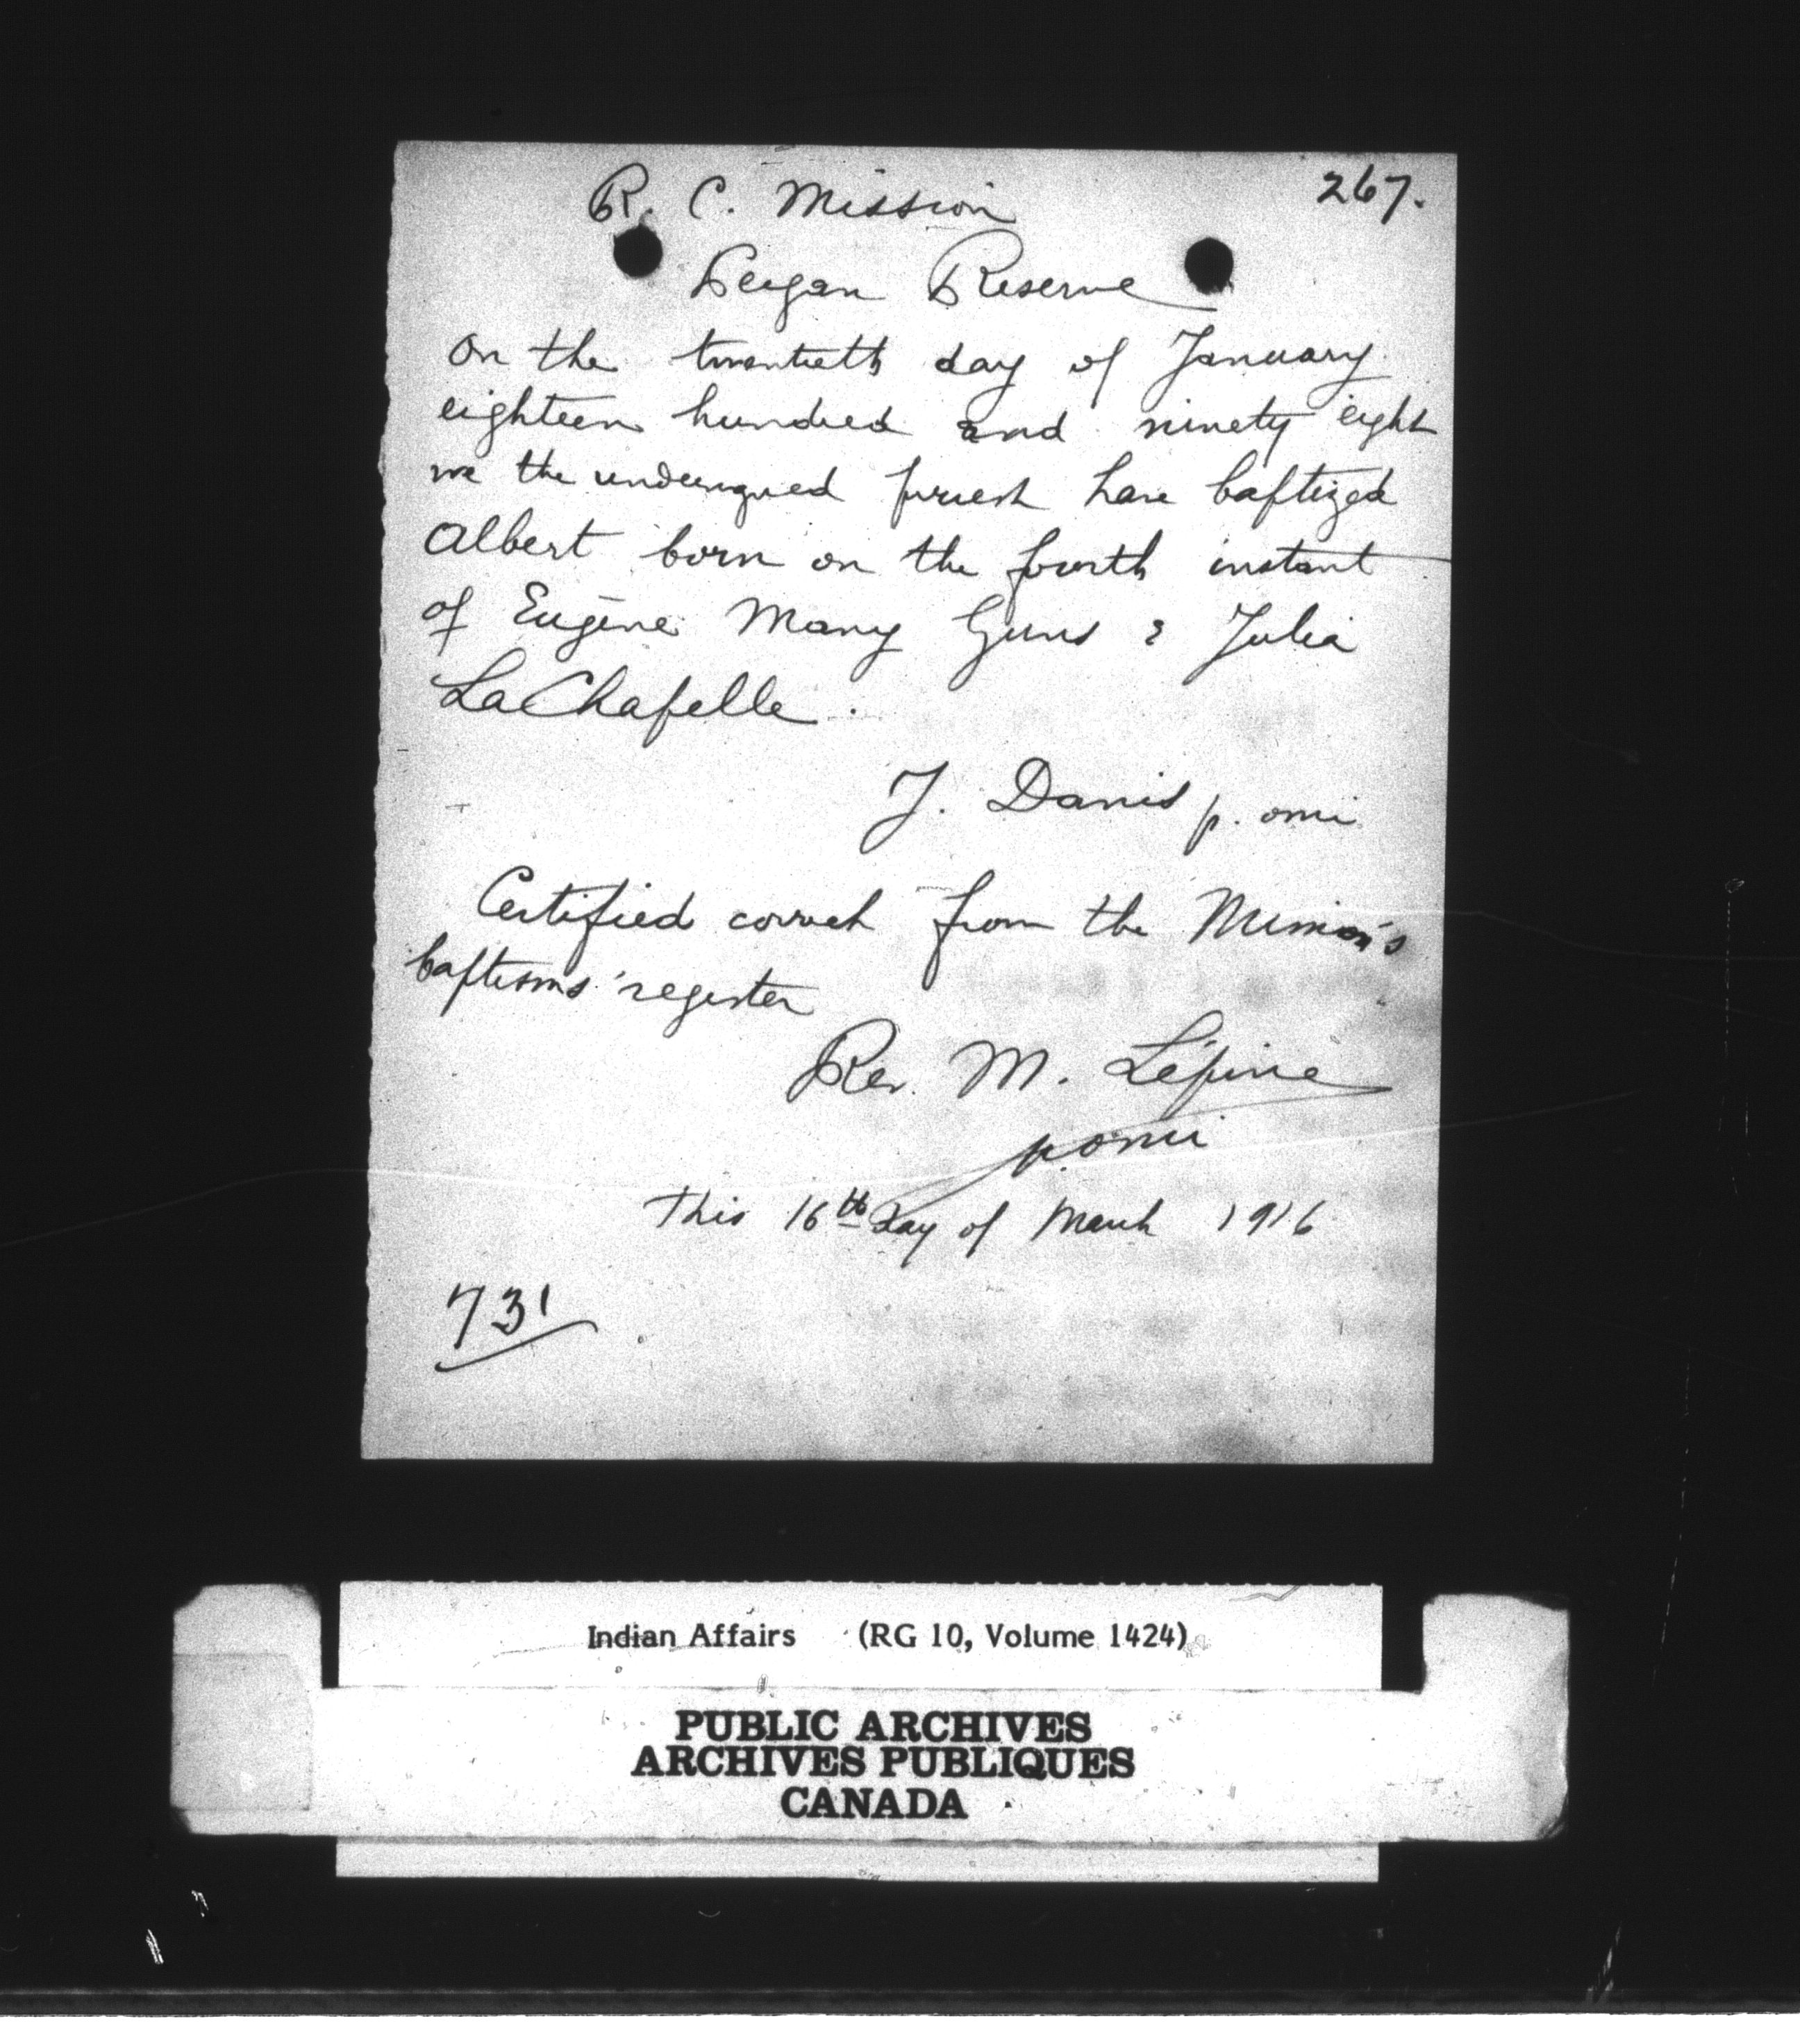 267.
R. C. Mission
Peigan Reserve
On the twentieth day of January
eighteen hundred and ninety eight
we the undersigned priest have baptized
Albert born on the fourth instant
of Eugène Many Guns & Julia
LaChapelle.
J. Danis p. omi
Certified correct from the Mission's
baptisms' register
Rev. M. Lépine
p. omi
This 16th day of March 1916
731
Indian Affairs (RG 10, Volume 1424)
PUBLIC ARCHIVES
ARCHIVES PUBLIQUES
CANADA